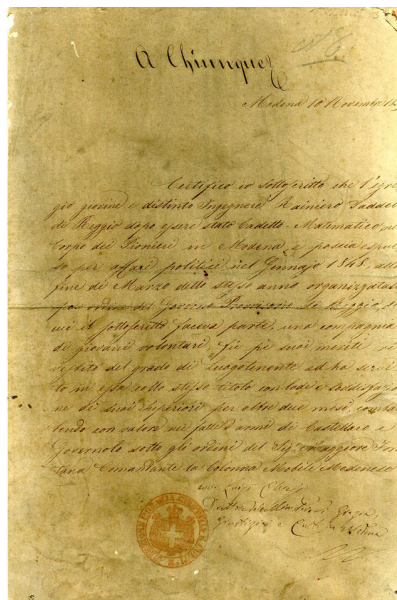 A Chiunque
Modena 10 Novembre
Certifico io sottoscritto che l'egre
gio giovine e distinto Ingegnere Rainiero Taddei
di Reggio dopo essere stato Cadetto Matematico nel
Corpo dei Pionieri in Modena, e poscia espul
so per affari politici nel Gennajo 1848, alla
fine di Marzo dello stesso anno organizzatasi
per ordine del Governo Provvisorio di Reggio, di
cui il sottoscritto faceva parte, una compagnia
di giovani volontari, fù pe' suoi meriti ri
vestito del grado di Luogotenente, ed ha servi
to in essa collo stesso titolo con lode e soddisfazio
ne di suoi Superiori per oltre due mesi, combat
tendo con valore nei fatti d'armi di Castellaro e
Governolo sotto gli ordini del Sig. Maggiore Fon
tana Comandante la Colonna Mobile Modenese
Luigi
Grazia
Giustizia e Culto Modena